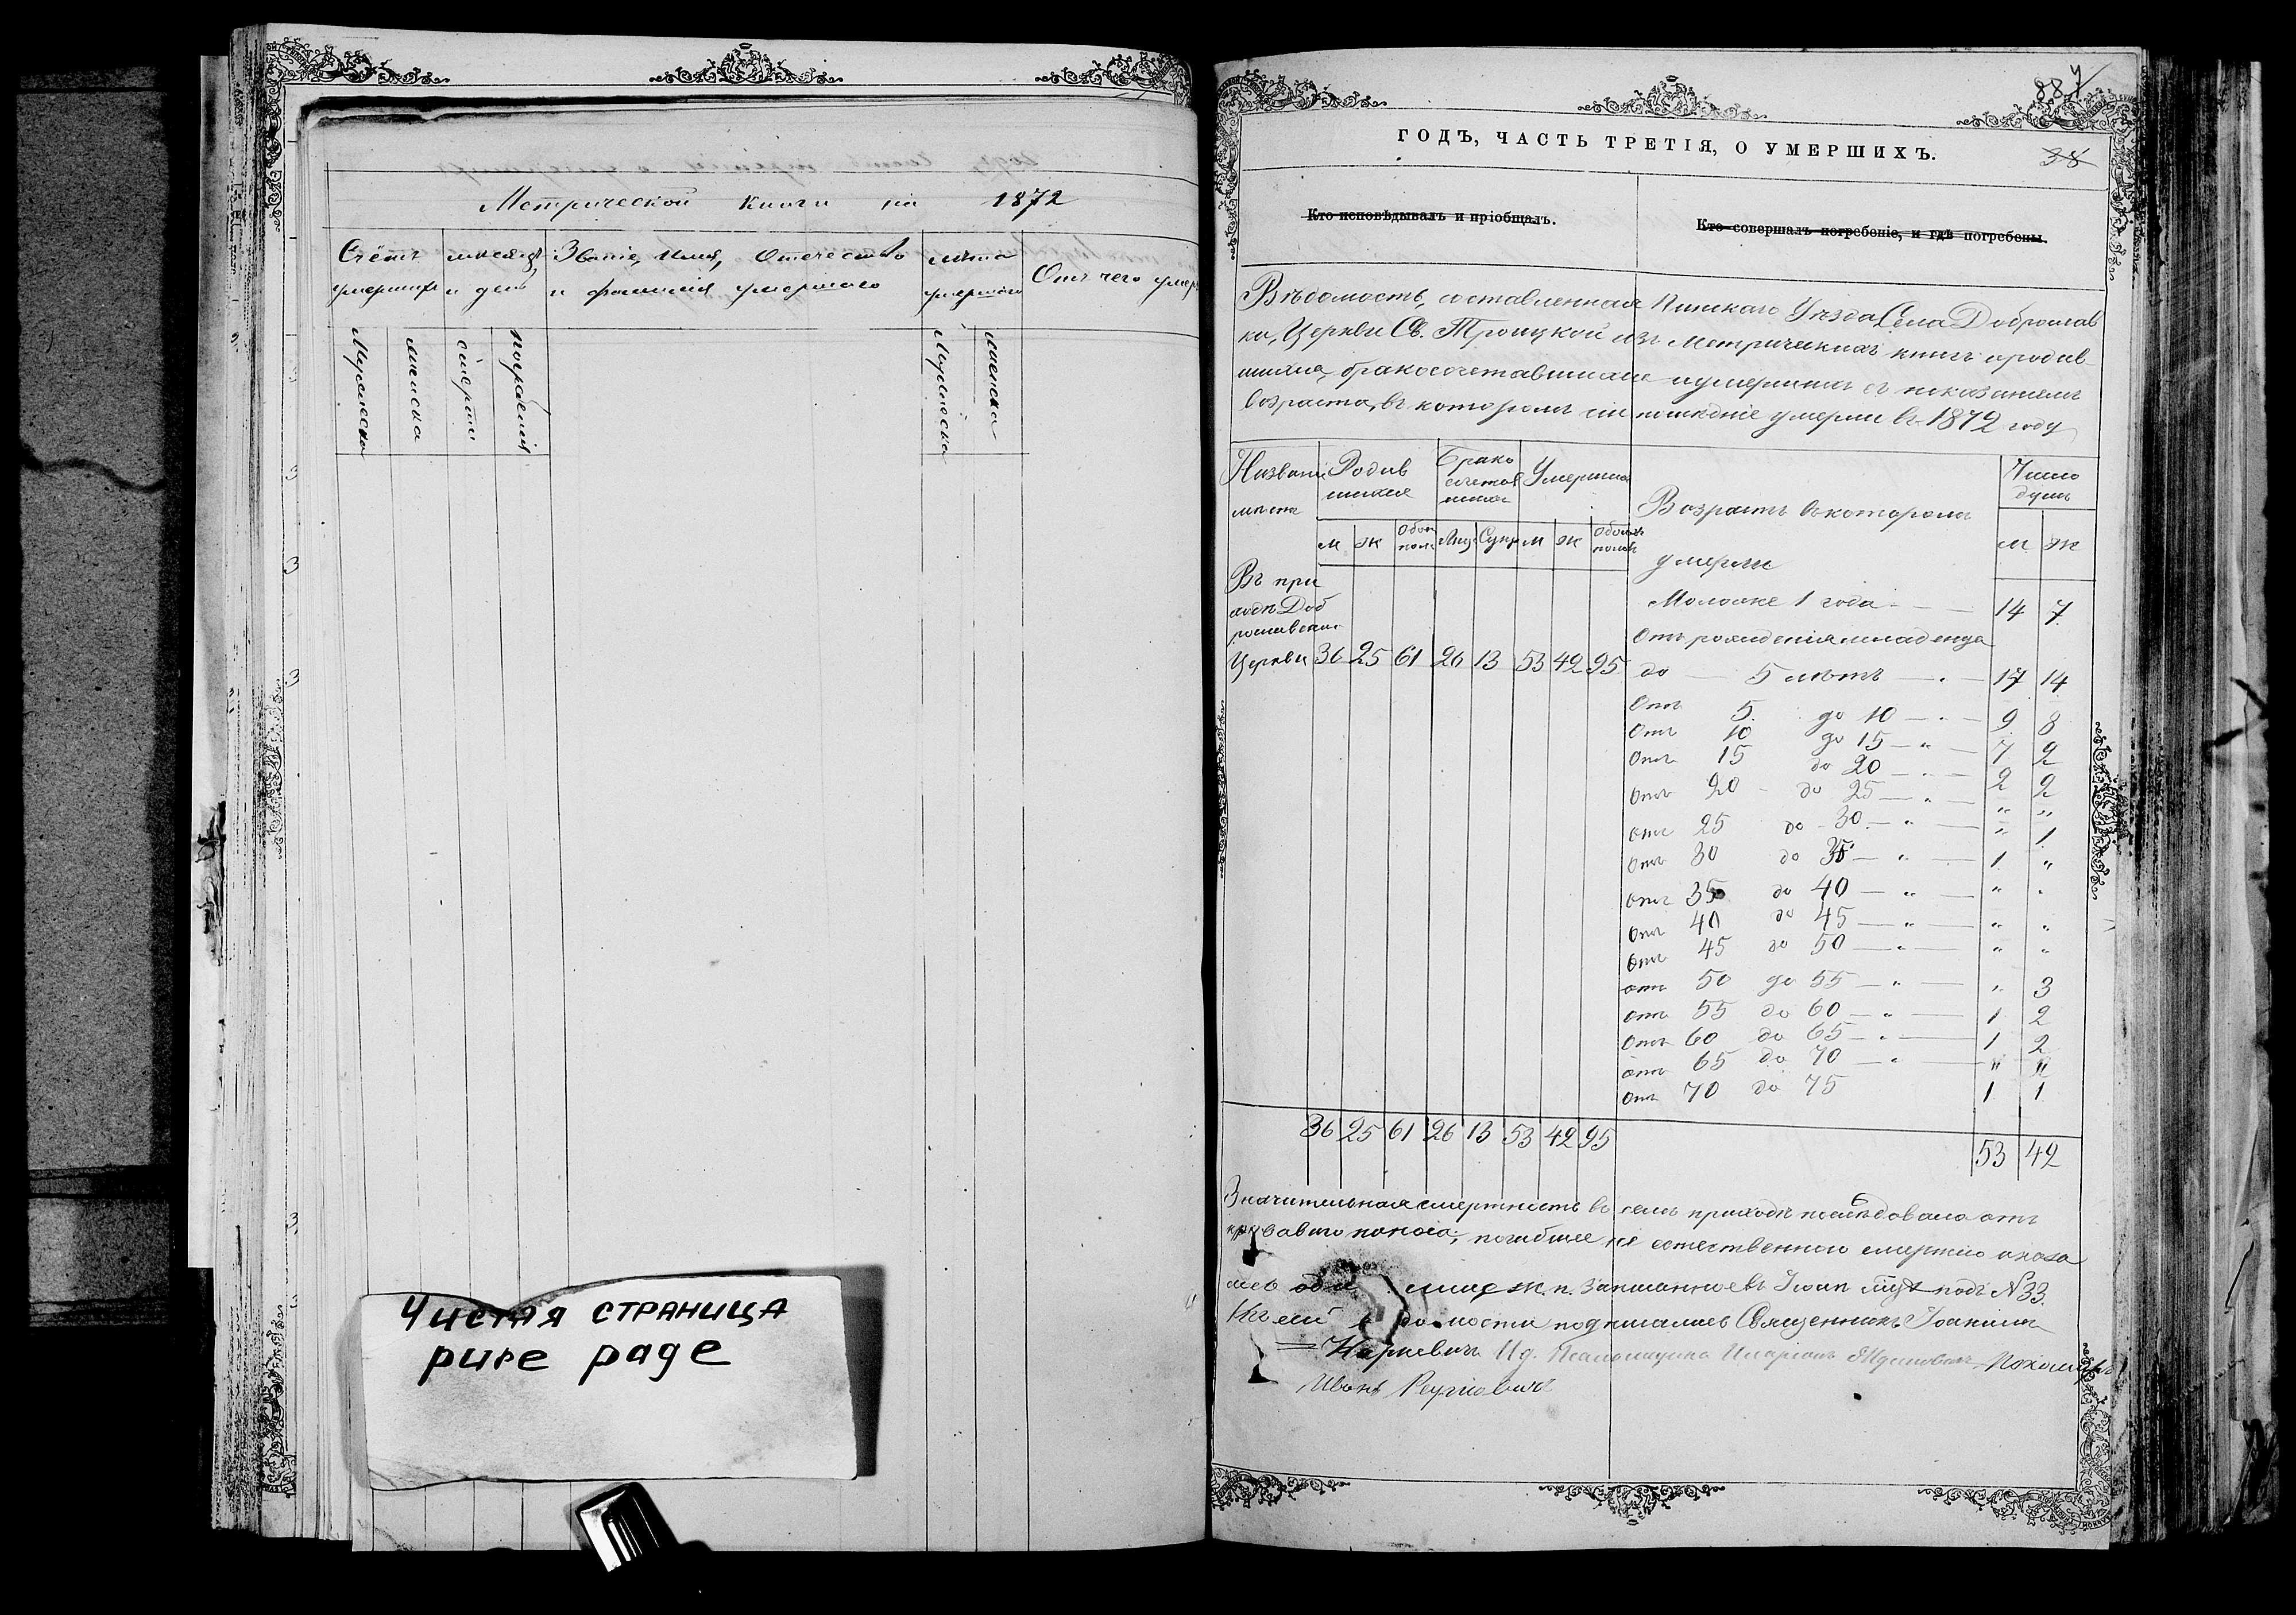 Метрической книги на 1872
Счетъ умершихъ
месяцъ и день
Званіе, имя, отечество и фамилія умершаго
лѣта умершаго
Отъ чего умеръ
Мужеска
женска
смерти
погребенія
Мужеска
женска
Чистая страница
pure page
887
38
ГОДЪ, ЧАСТЬ ТРЕТІЯ, О УМЕРШИХЪ.
Кто исповѣдывалъ и пріобщалъ.
Кто совершалъ погребеніе, и гдѣ погребены.
Вѣдомость, составленная Пинскаго Уѣзда Села Доброслав
ки, Церкви Св. Троицкой изъ Метрическихъ книгъ о родив-
шихся, бракосочетавшихся и умершихъ съ показаніемъ
возраста, въ которомъ сіи послѣдніе умерли въ 1872 году
Названіе мѣста
Родив шихся
Брако сочетав шихся
Умершихъ
Возрастъ въ которомъ умерли
Число душъ
м ж Обои. пол. Лиц. Супр. м ж Обоихъ половъ
м ж
Въ при
ходѣ Доб
рославской
Церкви 36 25 61 26 13 53 42 95
Моложе 1 года 14 7
Отъ рожденія младенца
до 5 лѣтъ 17 14
Отъ 5 до 10 9 8
Отъ 10 до 15 7 2
Отъ 15 до 20 2 2
Отъ 20 до 25 " "
Отъ 25 до 30 " 1
Отъ 30 до 35 1 "
Отъ 35 до 40 " "
Отъ 40 до 45 " "
Отъ 45 до 50 " "
Отъ 50 до 55 " 3
Отъ 55 до 60 1 2
Отъ 60 до 65 1 2
Отъ 65 до 70 " "
Отъ 70 до 75 1 1
36 25 61 26 13 53 42 95
53 42
Значительная смертность въ семъ приходѣ послѣдовала отъ
кроваваго поноса; погибшее не естественною смертію оказа
лось лице ж. п. записанное въ подъ N 33.
Къ сей вѣдомости подписались Священникъ Іоакимъ
Иванъ